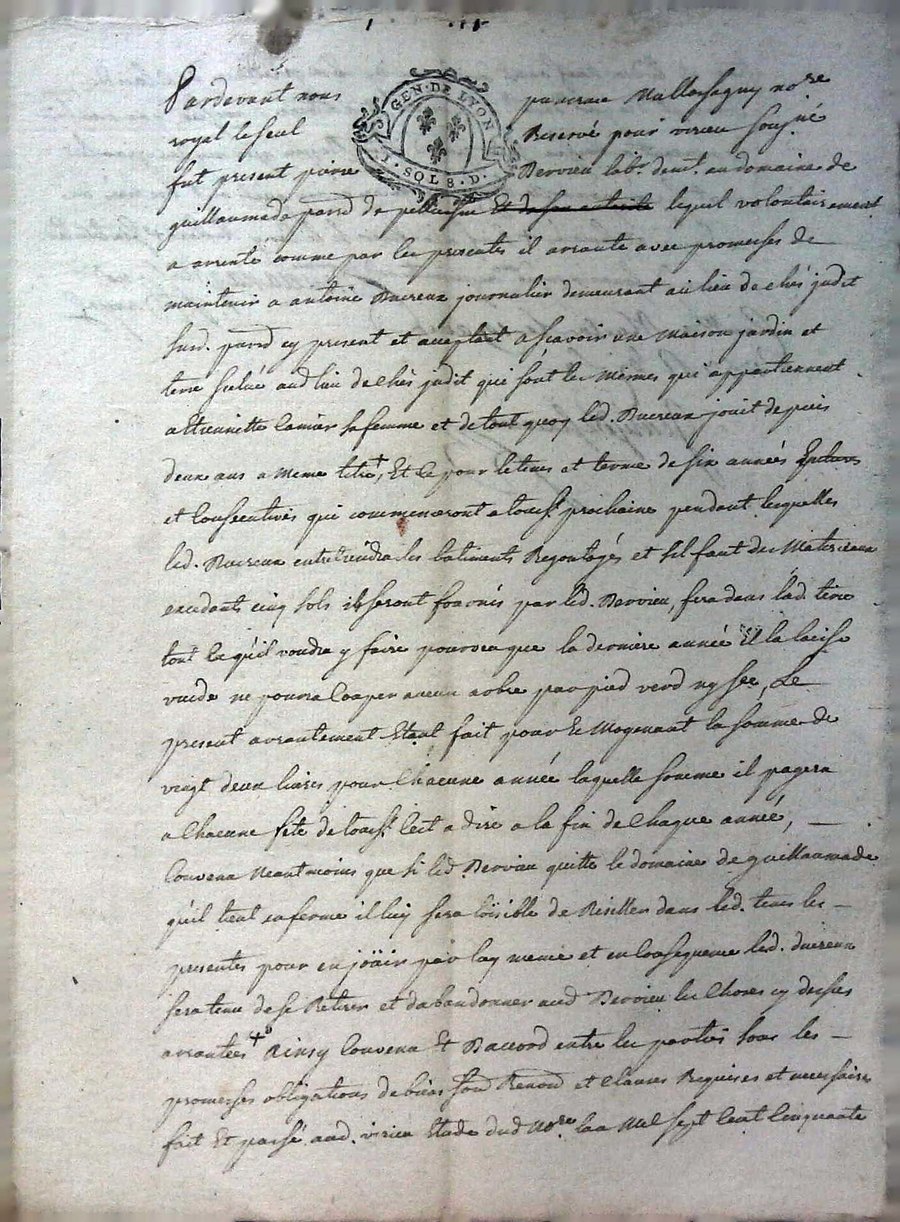 GEN · DE LYON
1 · SOL 8 · D ·
Pardevant nous no.re
royal le seul Reservé pour virieu sousné
fut present pierre Dervieu lab.r dem.t au domaine de
guillaumada parr.d de pellusin lequel volontairement
a arrenté comme par les presentes il arrante avec promesses de
maintenir a antoine journalier demeurant au lieu de chés judit
susd. parr.d cy present et acceptant ascavoir une Maison jardin et
terre scitué aud lieu de chés judit qui sont les mêmes qui appartiennent
a sa femme et de tout quoy led. jouit depuis
deux ans a meme titre + Et Ce pour le tems et terme de six années
et Consecutives qui commenceront a touss.t prochaine pendant lesquelles
led. entretiendra les batiments et sil faut des Materieaux
excedants cinq sols ils seront fournis par led. Dervieu, fera dans lad. terre
tout ce qu'il voudra y faire pourveu que la derniere année Il la laisse
vuide ne pourra Couper aucun arbre par pied verd ny sec, Le
present arrantement Etant fait pour Et Moyenant la somme de
vingt deux livres pour Chacune année laquelle somme il payera
a Chacune fete de touss.t Cest a dire a la fin de Chaque année, —
Convenu Neantmoins que si led Dervieu quitte le domaine de guillaumade
qu'il tient en ferme il luy sera loisible de Resillier dans led. tems les —
presentes pour en joüir par luy meme et en Consequence led.
sera tenu de se Retirer et d'abandonner aud Dervieu les Choses cy dessus
arrantées + Ainsy Convenu Et Daccord entre les parties sous les —
promesses obligations de biens Renond et Clauses Requises et necessaires
fait Et passé aud. virieu Etude dud No.re Lan Mil sept Cent Cinquante